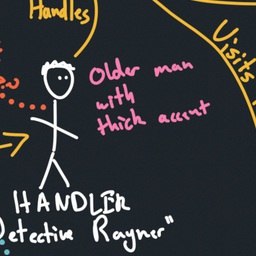 Handles
Visits
Older man
with
thick accent
HANDLER
Detective Rayner"